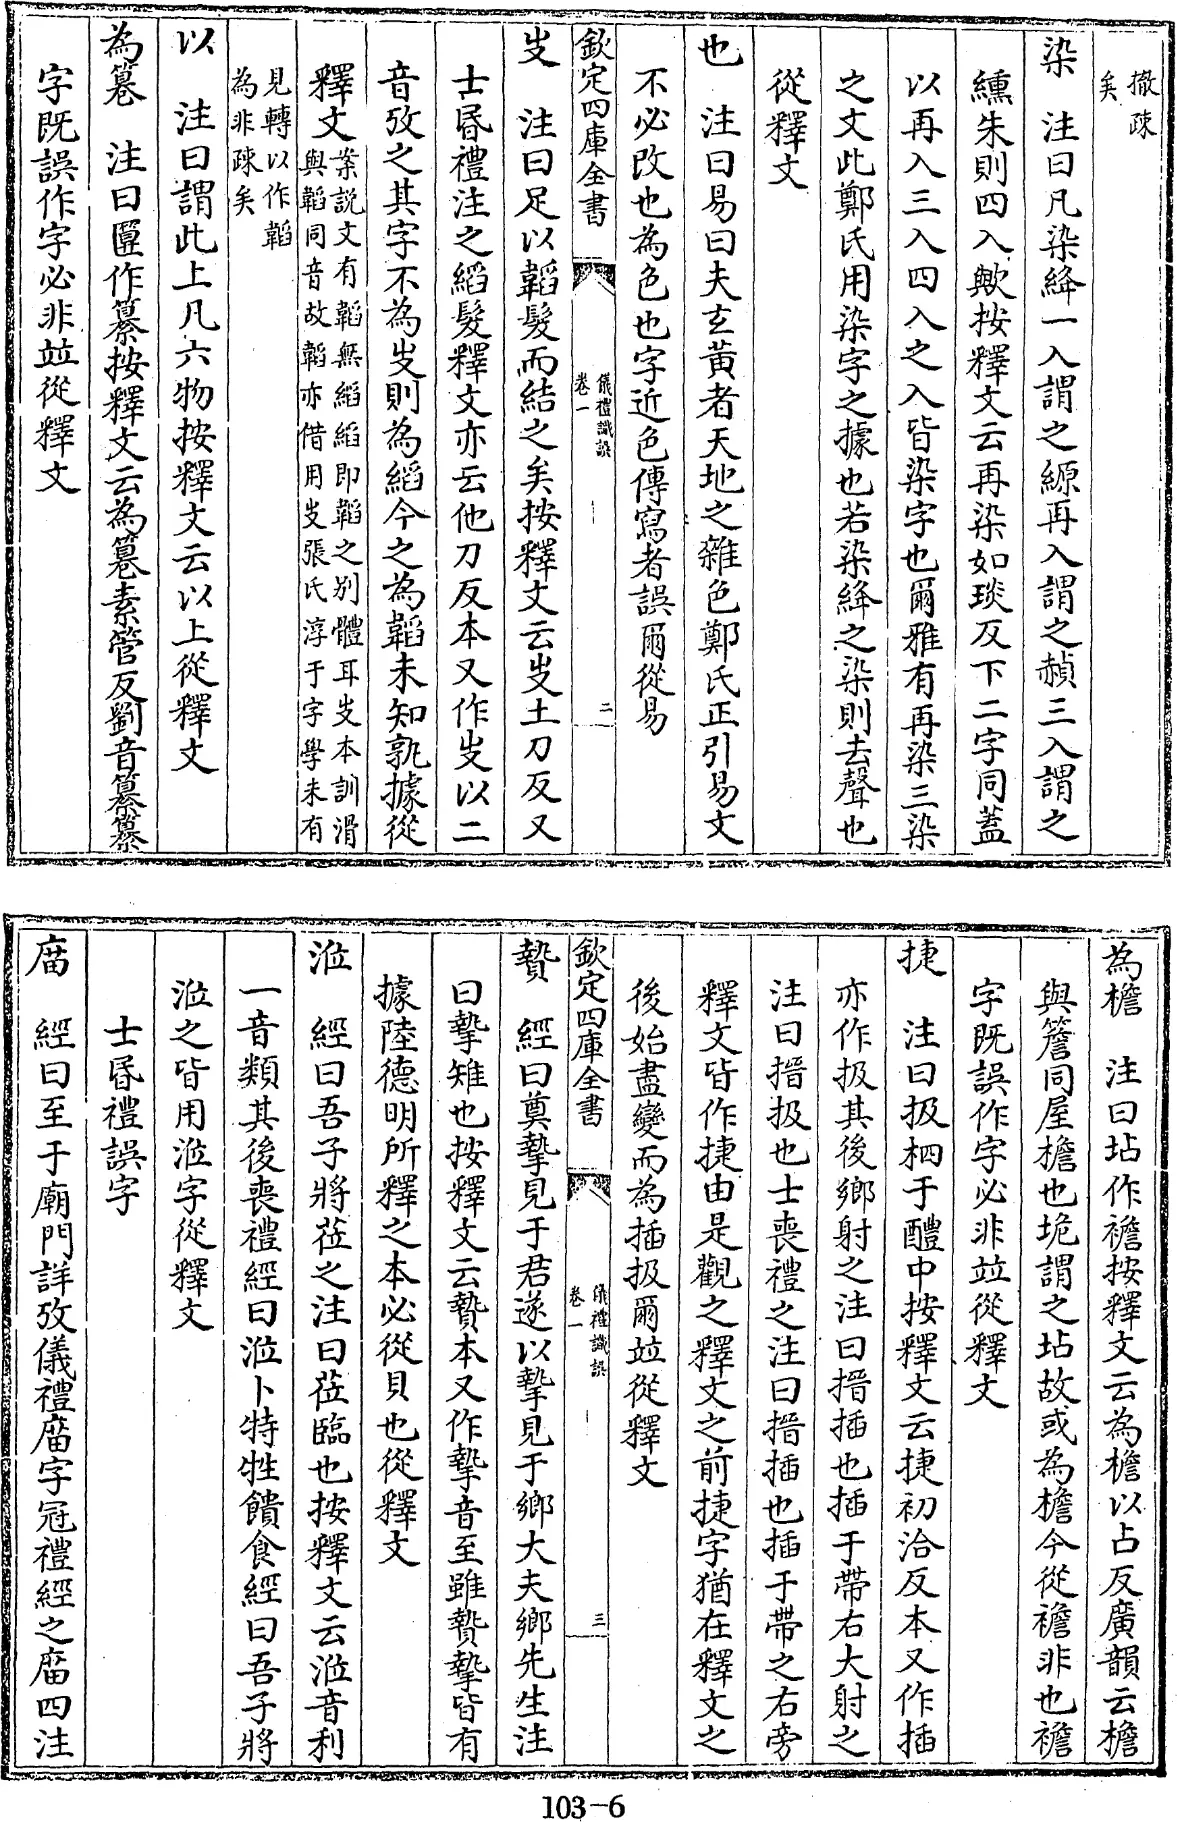 撤疎
矣
染　注曰凡染絳一入謂之縓再入謂之赬三入謂之
纁朱則四入歟按釋文云再染如琰反下二字同蓋
以再入三入四入之入皆染字也爾雅有再染三染
之文此鄭氏用染字之據也若染絳之染則去聲也
從釋文
也　注曰易曰夫玄黃者天地之雜色鄭氏正引易文
不必改也為色也字近色傳寫者誤爾從易
欽定四庫全書
儀禮識誤
卷一
二
㕞　注曰足以韜髮而結之矣按釋文云㕞土刀反又
士昏禮注之縚髮釋文亦云他刀反本又作㕞以二
音攷之其字不為㕞則為縚今之為韜未知孰據從
釋文
案說文有韜無縚縚即韜之別體耳㕞本訓滑
與韜同音故韜亦借用㕞張氏淳于字學未有
見轉以作韜
為非疎矣
以　注曰謂此上凡六物按釋文云以上從釋文
為䉵　注曰匴作纂按釋文云為䉵素管反劉音纂纂
字既誤作字必非並從釋文
為檐　注曰坫作襜按釋文云為檐以占反廣韻云檐
與簷同屋檐也垝謂之坫故或為檐今從襜非也襜
字既誤作字必非並從釋文
捷　注曰扱柶于醴中按釋文云捷初洽反本又作插
亦作扱其後鄉射之注曰搢插也插于帶右大射之
注曰搢扱也士喪禮之注曰搢插也插于帶之右旁
釋文皆作捷由是觀之釋文之前捷字猶在釋文之
後始盡變而為插扱爾並從釋文
欽定四庫全書
儀禮識誤
卷一
三
贄　經曰奠摯見于君遂以摯見于鄉大夫鄉先生注
曰摯雉也按釋文云贄本又作摯音至雖贄摯皆有
據陸德明所釋之本必從貝也從釋文
涖　經曰吾子將莅之注曰莅臨也按釋文云涖音利
一音類其後喪禮經曰涖卜特牲饋食經曰吾子將
涖之皆用涖字從釋文
士昏禮誤字
庿　經曰至于廟門詳攷儀禮庿字冠禮經之庿四注
103-6